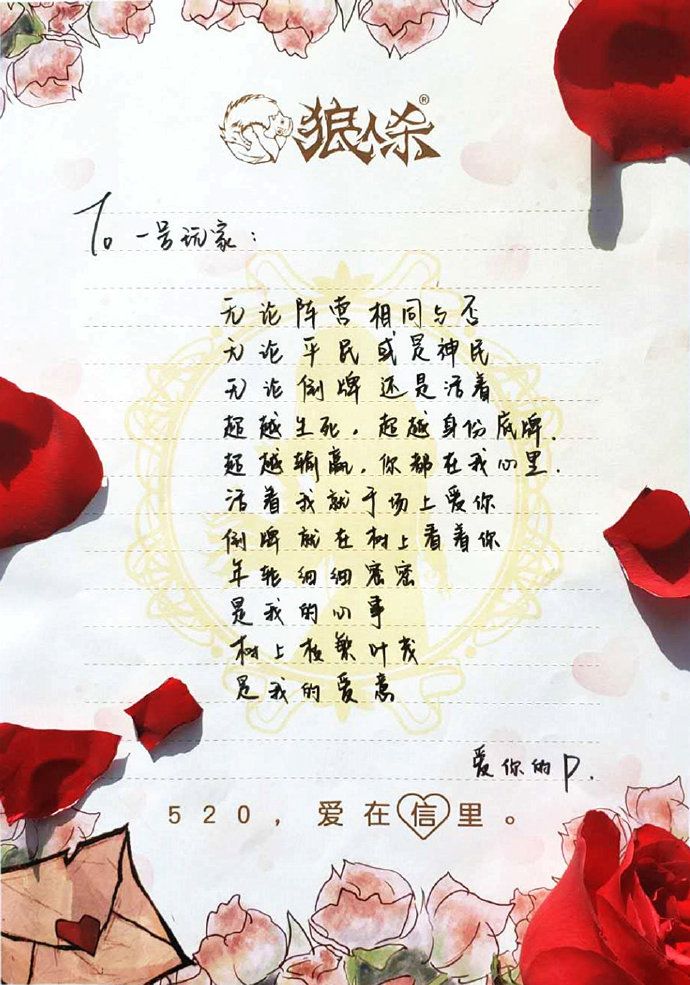 狼人杀®
To 一号玩家：
无论阵营相同与否
无论平民或是神民
无论倒牌还是活着
超越生死，超越身份底牌.
超越输赢，你都在我心里.
活着我就于场上爱你
倒牌就在树上看着你
年轮细细密密
是我的心事
树上枝繁叶茂
是我的爱意
爱你的P.
520，爱在信里。